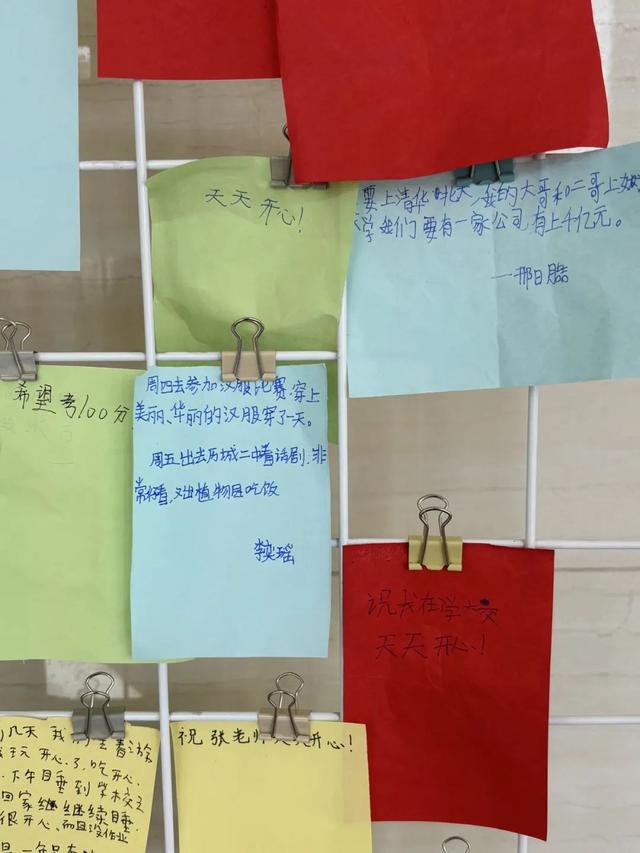 天天开心!
要上清华北大,我的大哥和二哥上
学我们要有一家公司有上千亿元。
希望考100分
周四去参加汉服比赛,穿上
美丽、华丽的汉服穿了一天。
周五出去历城二中看话剧,非
常好看,又出植物园吃饭
祝我在学校
天天开心!
几天我们去春游
玩开心了,吃开心
下午睡到学校
回家继继续睡
很开心、而且没作业
祝张老师天天开心!